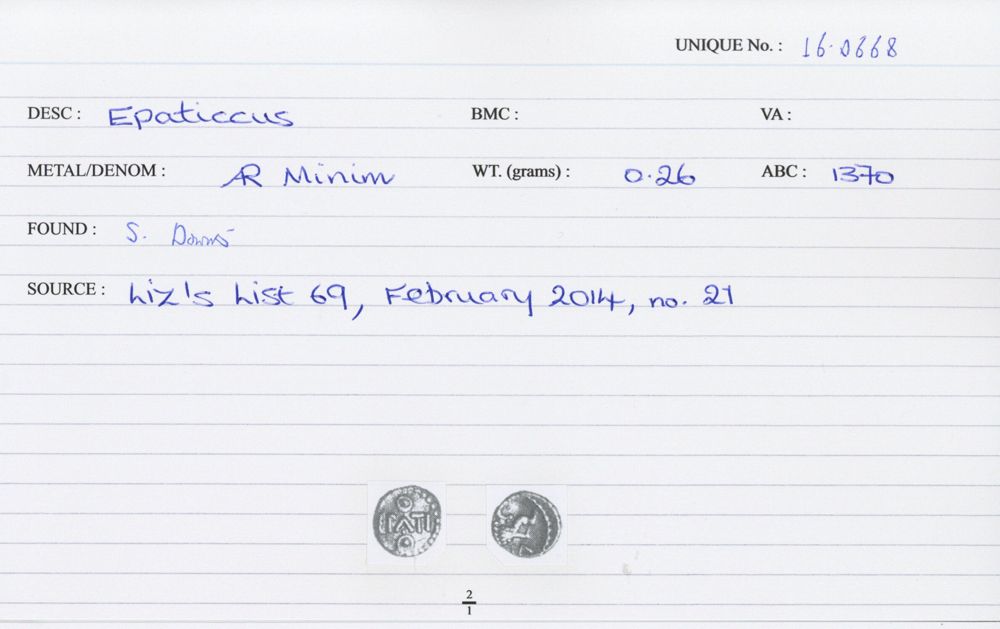 UNIQUE No. : 16.0668
DESC : Epaticcus BMC : VA :
METAL/DENOM : AR Minim WT. (grams) : 0.26 ABC : 1370
FOUND : S. Downs
SOURCE : Liz's List 69, February 2014, no. 21
2
1